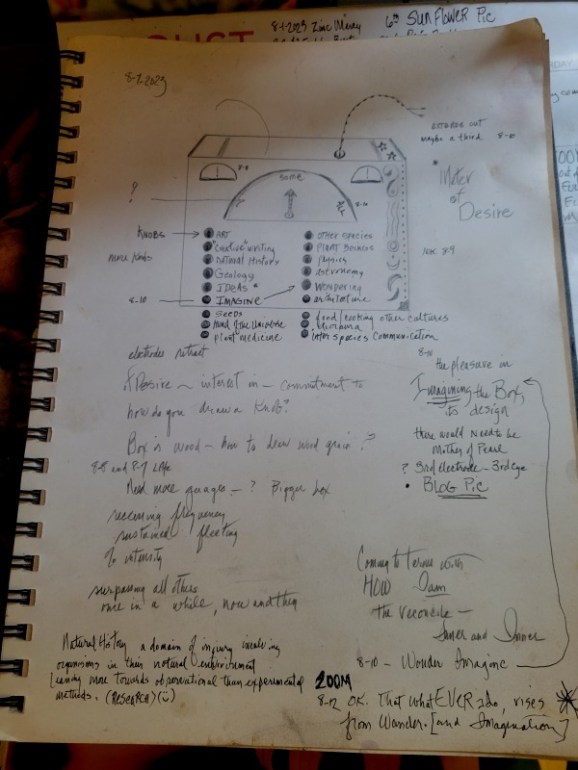 8-1-2023 Zinc Money
6th Sunflower Pic
8-7-2023
electrodes out
maybe a third 8-10
* Meter
of
Desire
some
?
Knobs
more knobs
8-10
ART
"creative" writing
natural history
Geology
IDEAS *
IMAGINE
Seeds
Mind of the Universe
Plant medicine
other species
PLANT BEINGS
physics
Astronomy
Wondering
architecture
food/rooting other cultures
inter species communication
electrodes retract
* Desire ~ interest in - commitment to
how do you draw a Knob?
Box is wood - how to draw wood grain?
8-8 and 8-9
Need more gauges - ? Bigger box
receiving frequency
sustained fleeting
% intensity
surpassing all others
once in a while, now and then
8-10
the pleasure in
Imagining the Box,
its design
there would need to be
Mother of Pearl
? 3rd electrode - 3rd eye
• BLOG PIC
Coming to terms with
HOW I am
the
Inner and Inner
8-10 - Wonder Imagine
Natural History a domain of inquiry involving
organisms in their natural environment
Leaning more towards observational than experimental
methods. (RESEARCH)
ZOOM
8-12 OK. That whatEVER I do, rises
from Wonder. [and Imagination]